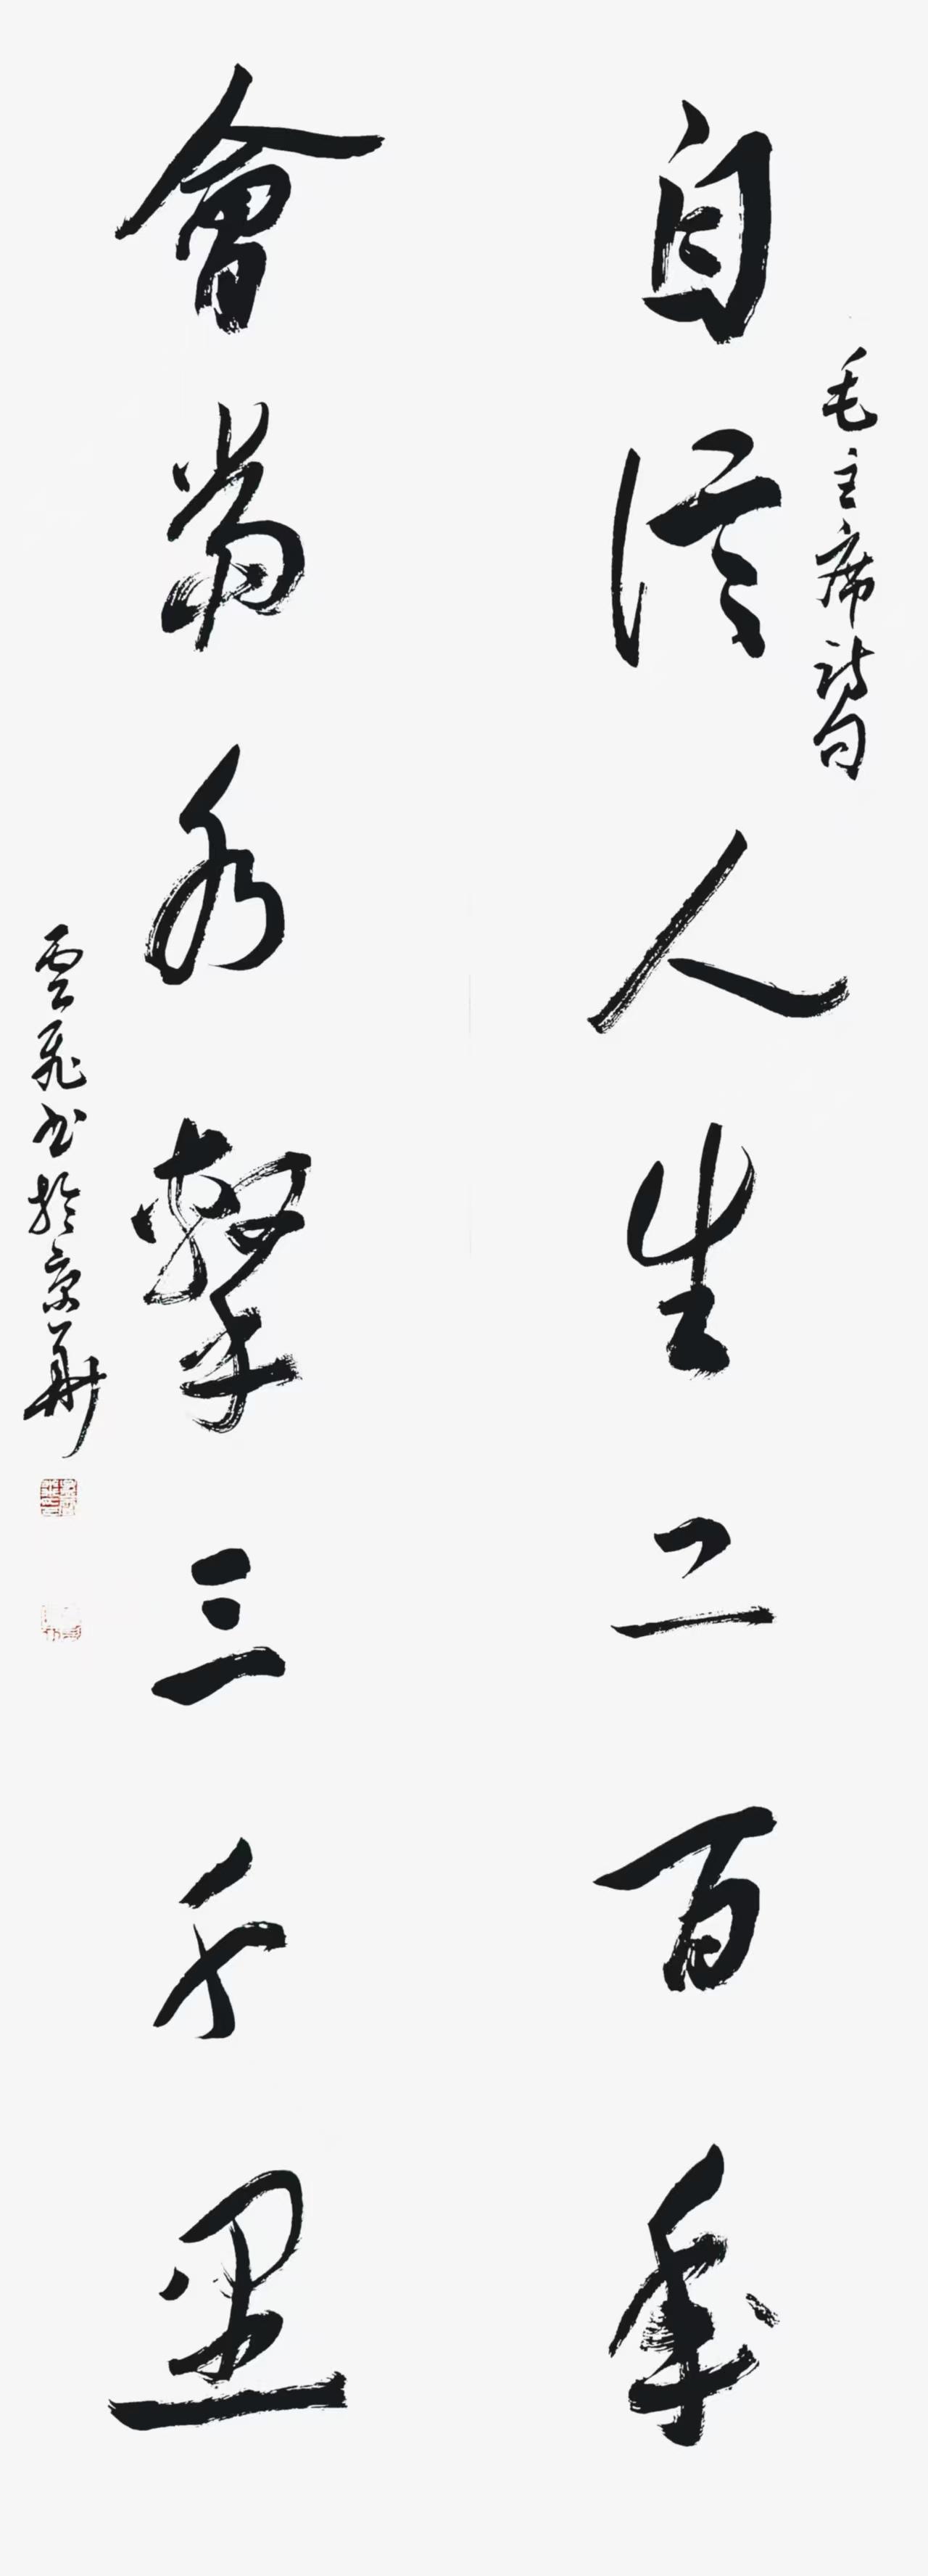 毛主席詩句
自信人生二百年
會當水擊三千里
雲飛书於京華